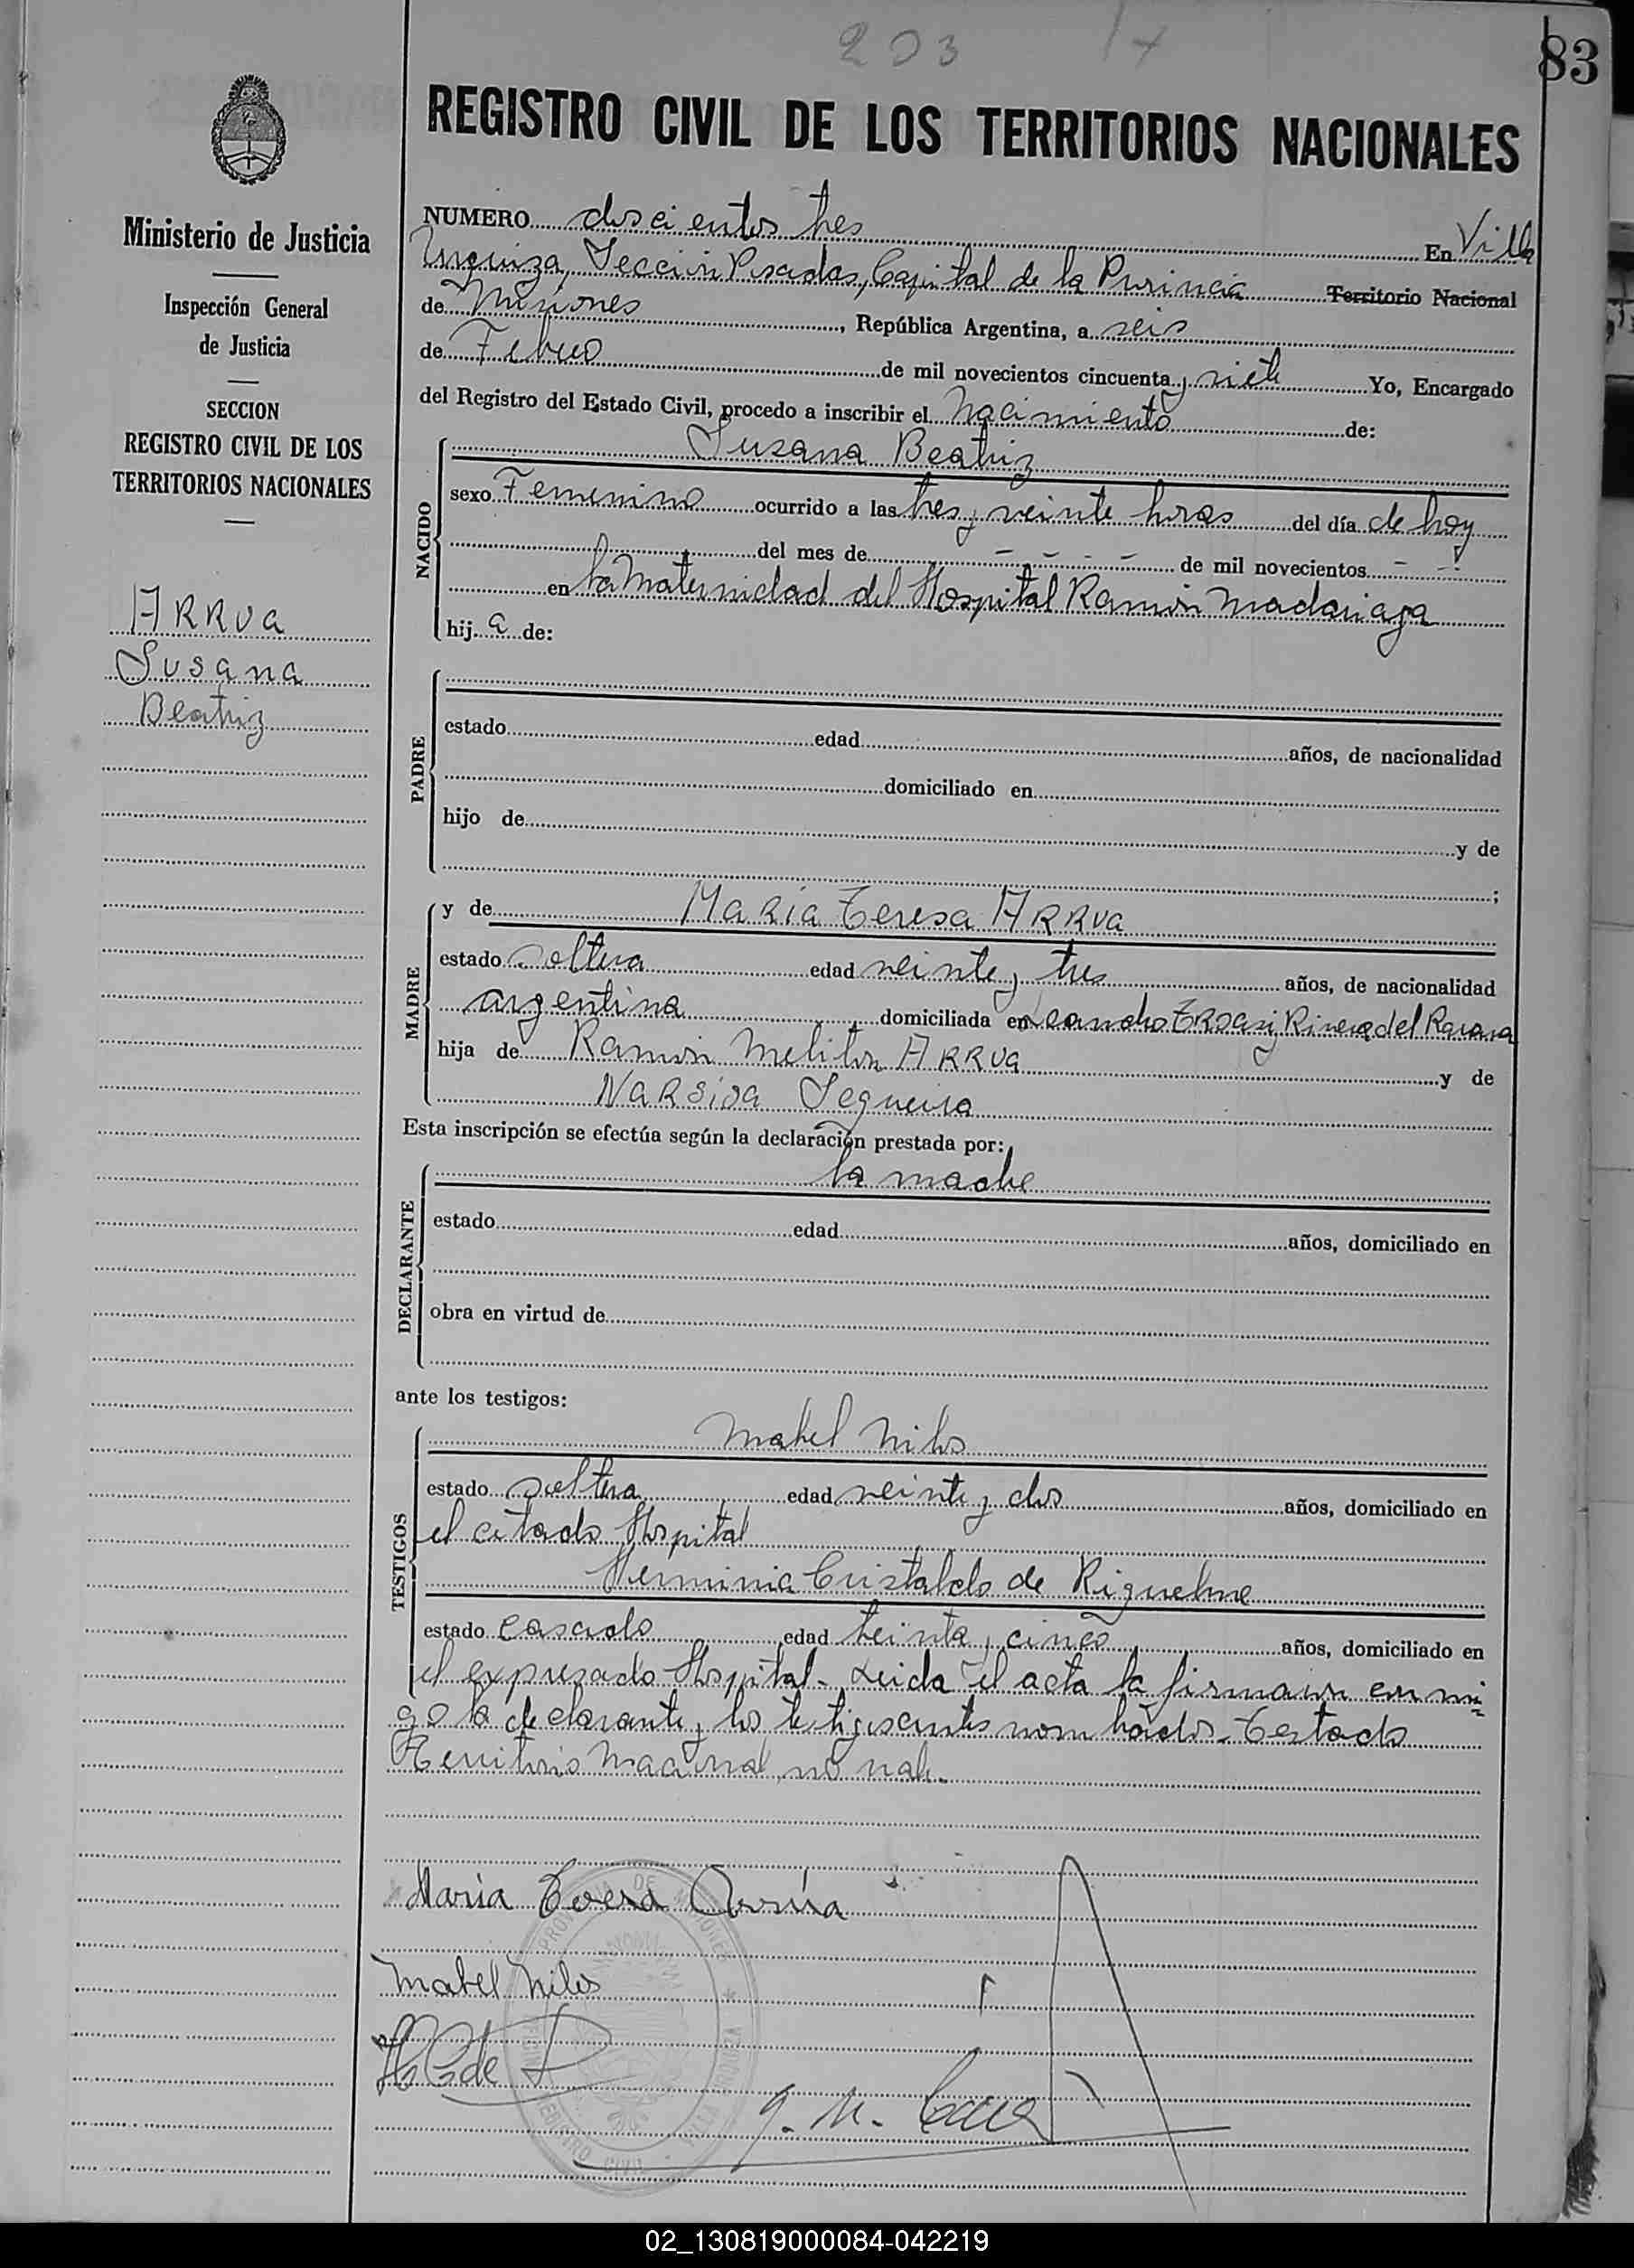 203
83
REGISTRO CIVIL DE LOS TERRITORIOS NACIONALES
Ministerio de Justicia
Inspección General
de Justicia
SECCION
REGISTRO CIVIL DE LOS
TERRITORIOS NACIONALES
ARRUA
Susana
Beatriz
NUMERO doscientos tres En Villa
Urquiza, Sección Posadas, Capital de la Provincia Territorio Nacional
de Misiones, República Argentina, a seis
de Febrero de mil novecientos cincuenta y siete Yo, Encargado
del Registro del Estado Civil, procedo a inscribir el Nacimiento de:
NACIDO
Susana Beatriz
sexo Femenino ocurrido a las tres y veinte horas del día de hoy
del mes de - - - - de mil novecientos - -
en la Maternidad del Hospital Ramón Madariaga
hij a de:
PADRE
estado edad años, de nacionalidad
domiciliado en
hijo de y de
;
MADRE
y de Maria Teresa ARRUA
estado soltera edad veinte y tres años, de nacionalidad
argentina domiciliada en Rivera del Parana
hija de Ramón Meliton ARRUA y de
NARSISA Sequeira
Esta inscripción se efectúa según la declaración prestada por:
DECLARANTE
la madre
estado edad años, domiciliado en
obra en virtud de
ante los testigos:
TESTIGOS
Mabel Nilos
estado soltera edad veinte y dos años, domiciliado en
el citado Hospital
Herminia Cristaldo de Riquelme
estado casado edad treinta y cinco años, domiciliado en
el expresado Hospital. Leida el acta la firmaron conmi
go la declarante y los testigos antes nombrados. Testado
Territorio Nacional no vale.
Maria Teresa Arrúa
Mabel Nilos
H C de R
PROVINCIA DE MISIONES
REGISTRO CIVIL
VILLA URQUIZA
02_130819000084-042219